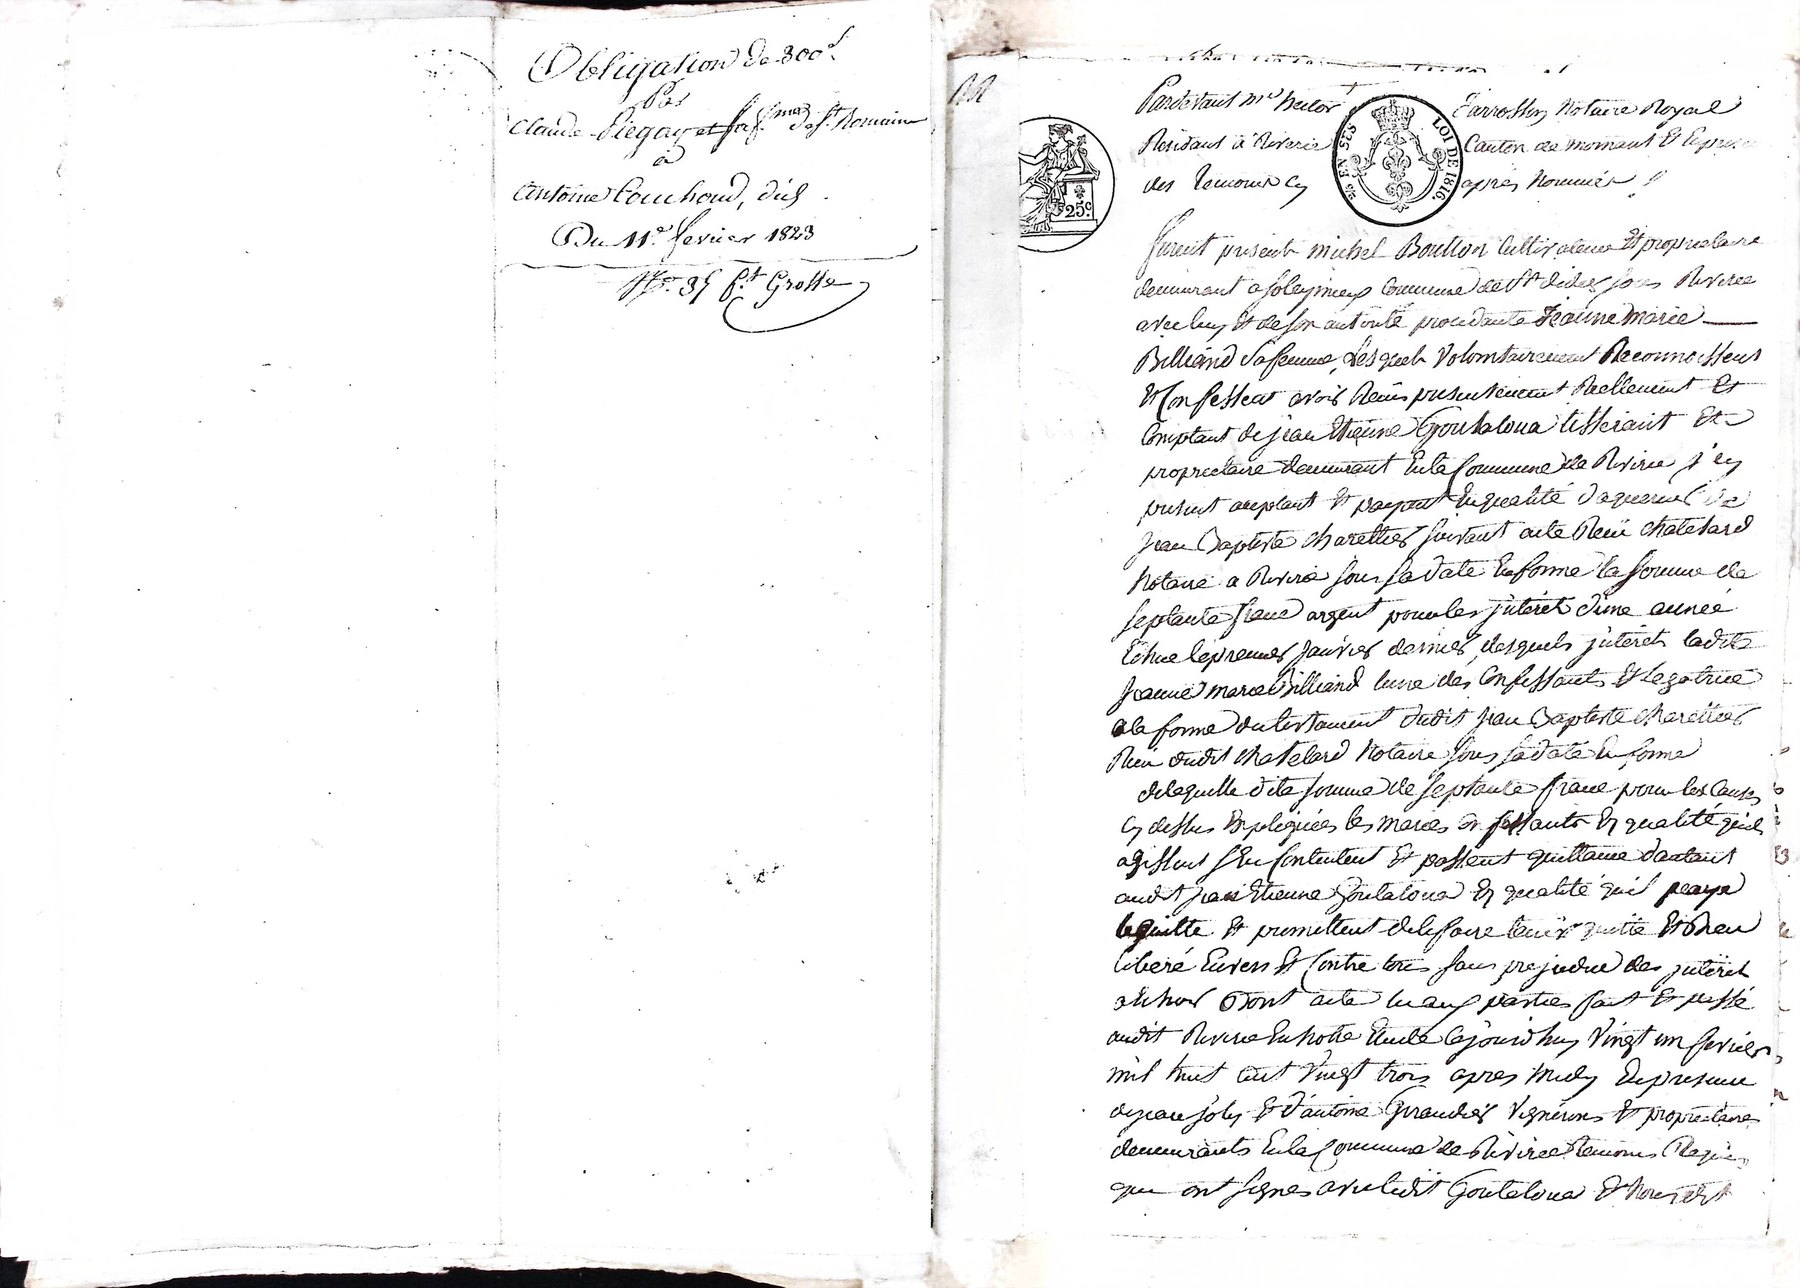 Obligation de 300f.
Par
Claude Piegay et sa fme de St Romain
à
Antoine Couchoud, dud.
Du 11e fevrier 1823
No. 35 ft Grosse
22
Pardevant me hector Notaire Royal
Residant à Riverie Canton de mornant Et En presence
des temoins Cy après Nommés
2/10 EN SUS LOI DE 1816.
25c
furent présents michel Boullon Cultivateur Et proprietaire
demeurant a soleymieux Commune de St didier sous Riverie
avec luy Et de son autorité procedante Jeanne marie
Billiand sa femme, Lesquels Volontairement Reconnoissent
Et Confessent avoir Reçu presentement Reellement Et
Comptant de jean Etienne Goutaloua tisserant Et
proprietaire demeurant En la Commune de Riverie j'cy
present acceptant Et payant En qualité d'aquereur de
jean Baptiste charettier suivant acte Reçu chatelard
Notaire a Riverie sous sa date En forme la somme de
septante franc argent pour les jnteret d'une année
Echue le premier janvier dernier, desquels jnterets ladite
jeanne marie Billiand l'une des Confessants Et Legatrice
a la forme du testament dudit jean Baptiste charettier
Reçu dudit chatelard Notaire sous sa date En forme
de laquelle dite somme de septante franc pour les Causes
Cy dessus Expliquées les mariés Confessants En qualité qu'ils
agissent s'En Contentent Et passent quittance d'autant
audit jean Etienne Goutaloua En qualité qu'il paye
le quitte Et promettent de le faire tenir quitte Et Bien
liberé Envers Et Contre tous sans prejudice des jnteret
a Echoir Dont acte lu aux parties fait Et passé
audit Riverie En notre Etude Cejourd'huy Vingt un fevrier
mil huit cent Vingt trois apres midy En presence
de jean joly Et d'antoine Giraudier Vignerons Et proprietaires
demeurants En la Commune de Riverie temoins Requis
qui ont signés avec ledit Goutaloua Et Nous dit